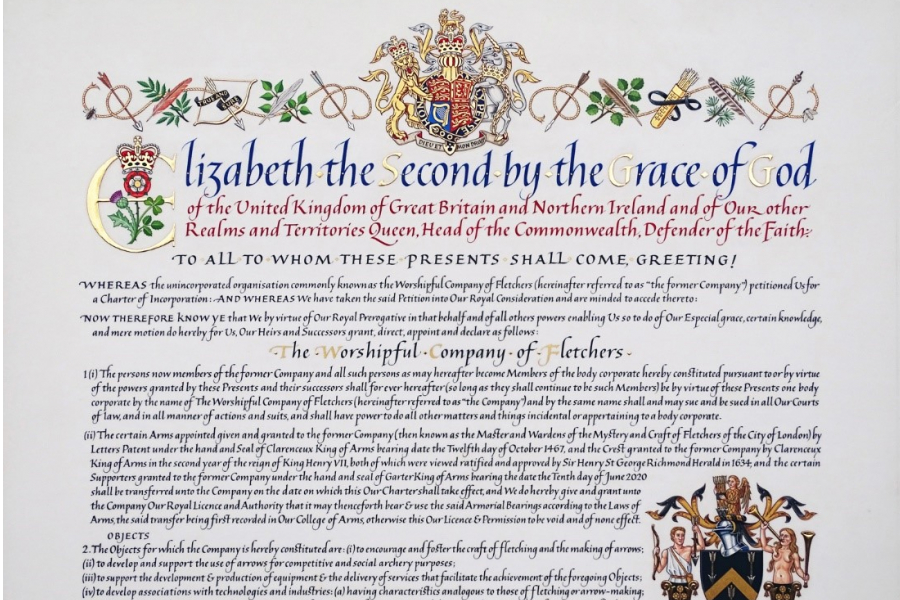 TRUE AND SURE
DIEU ET MON DROIT
Elizabeth the Second by the Grace of God
of the United Kingdom of Great Britain and Northern Ireland and of Our other
Realms and Territories Queen, Head of the Commonwealth, Defender of the Faith:
TO ALL TO WHOM THESE PRESENTS SHALL COME, GREETING!
WHEREAS the unincorporated organisation commonly known as the Worshipful Company of Fletchers (hereinafter referred to as "the former Company") petitioned Us for
a Charter of Incorporation: AND WHEREAS We have taken the said Petition into Our Royal Consideration and are minded to accede thereto:
NOW THEREFORE KNOW YE that We by virtue of Our Royal Prerogative in that behalf and of all others powers enabling Us so to do of Our Especial grace, certain knowledge,
and mere motion do hereby for Us, Our Heirs and Successors grant, direct, appoint and declare as follows:
The Worshipful Company of Fletchers
1 (i) The persons now members of the former Company and all such persons as may hereafter become Members of the body corporate hereby constituted pursuant to or by virtue
of the powers granted by these Presents and their successors shall for ever hereafter (so long as they shall continue to be such Members) be by virtue of these Presents one body
corporate by the name of The Worshipful Company of Fletchers (hereinafter referred to as "the Company") and by the same name shall and may sue and be sued in all Our Courts
of law, and in all manner of actions and suits, and shall have power to do all other matters and things incidental or appertaining to a body corporate.
(ii) The certain Arms appointed given and granted to the former Company (then known as the Master and Wardens of the Mystery and Craft of Fletchers of the City of London) by
Letters Patent under the hand and Seal of Clarenceux King of Arms bearing date the Twelfth day of October 1467, and the Crest granted to the former Company by Clarenceux
King of Arms in the second year of the reign of King Henry VII, both of which were viewed ratified and approved by Sir Henry St George Richmond Herald in 1634, and the certain
Supporters granted to the former Company under the hand and seal of Garter King of Arms bearing the date the Tenth day of June 2020
shall be transferred unto the Company on the date on which this Our Charter shall take effect, and We do hereby give and grant unto
the Company Our Royal Licence and Authority that it may thenceforth bear & use the said Armorial Bearings according to the Laws of
Arms, the said transfer being first recorded in Our College of Arms, otherwise this Our Licence & Permission to be void and of none effect.
OBJECTS
2. The Objects for which the Company is hereby constituted are: (i) to encourage and foster the craft of fletching and the making of arrows;
(ii) to develop and support the use of arrows for competitive and social archery purposes;
(iii) to support the development & production of equipment & the delivery of services that facilitate the achievement of the foregoing Objects;
(iv) to develop associations with technologies and industries: (a) having characteristics analogous to those of fletching or arrow-making;